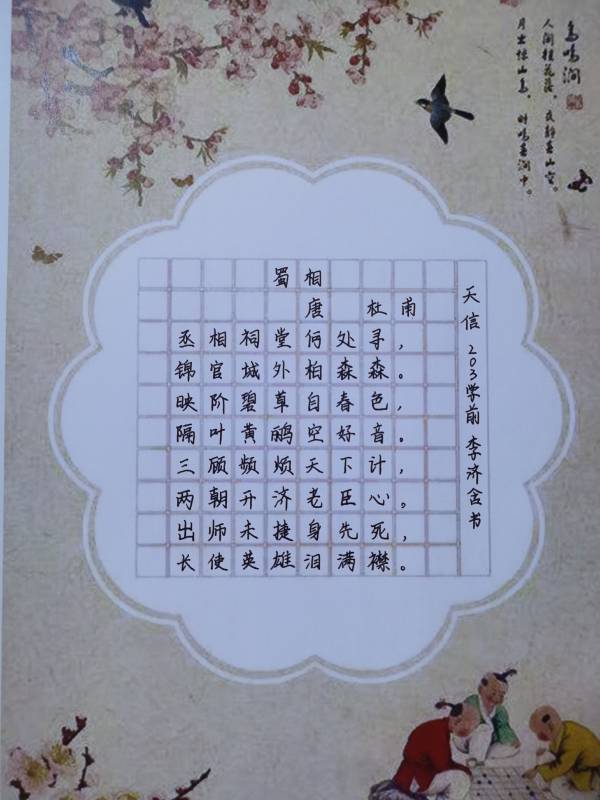 鸟鸣涧
人闲桂花落，夜静春山空。
月出惊山鸟，时鸣春涧中。
蜀相
唐 杜甫
丞相祠堂何处寻，
锦官城外柏森森。
映阶碧草自春色，
隔叶黄鹂空好音。
三顾频烦天下计，
两朝开济老臣心。
出师未捷身先死，
长使英雄泪满襟。
天信 203学前 李济含书